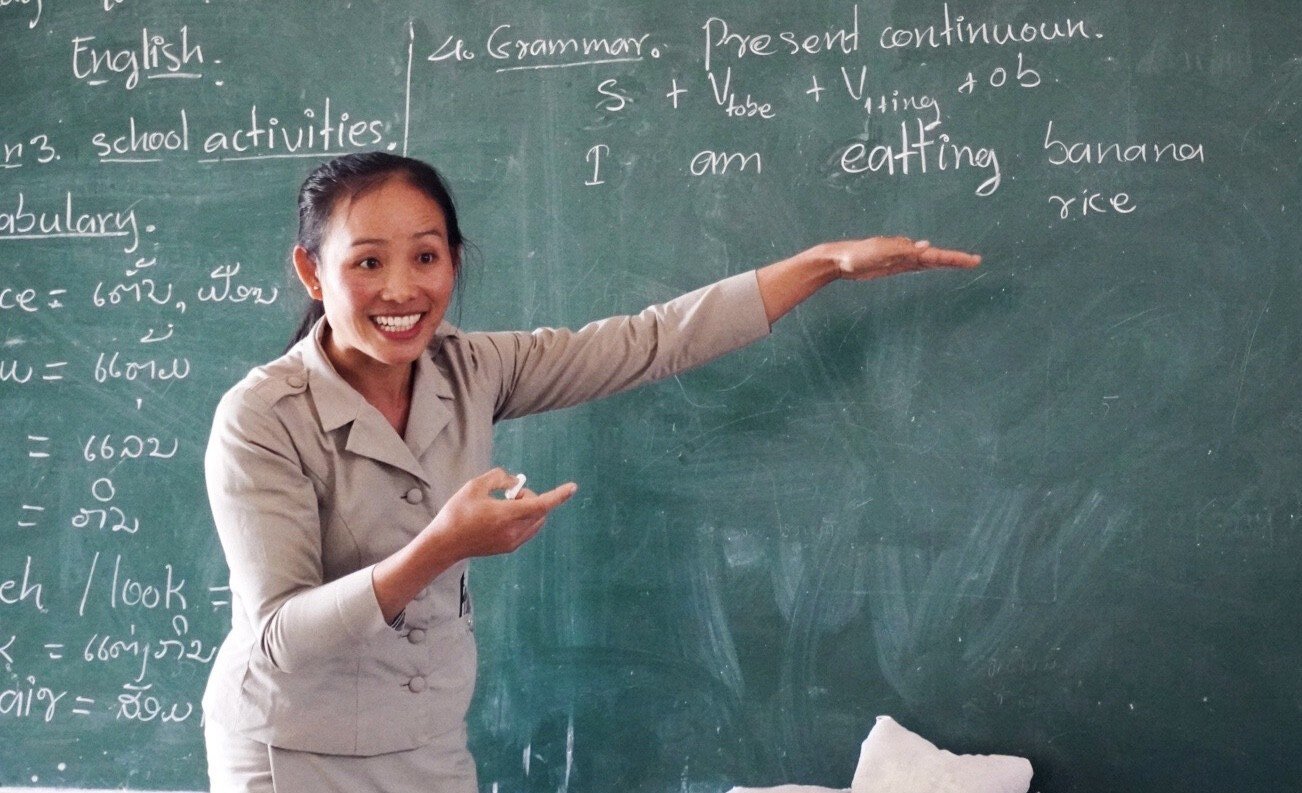 English.
n 3. school activities.
abulary.
ce = ເຕັ້ນ, ຟ້ອນ
= ແຕ້ມ
= ແລ່ນ
=
eh / look =
= ແຕ່ງກິນ
air =
4. Grammar. Present continuoun.
S + Vtobe + V1+ing + ob.
I am eatting banana
rice